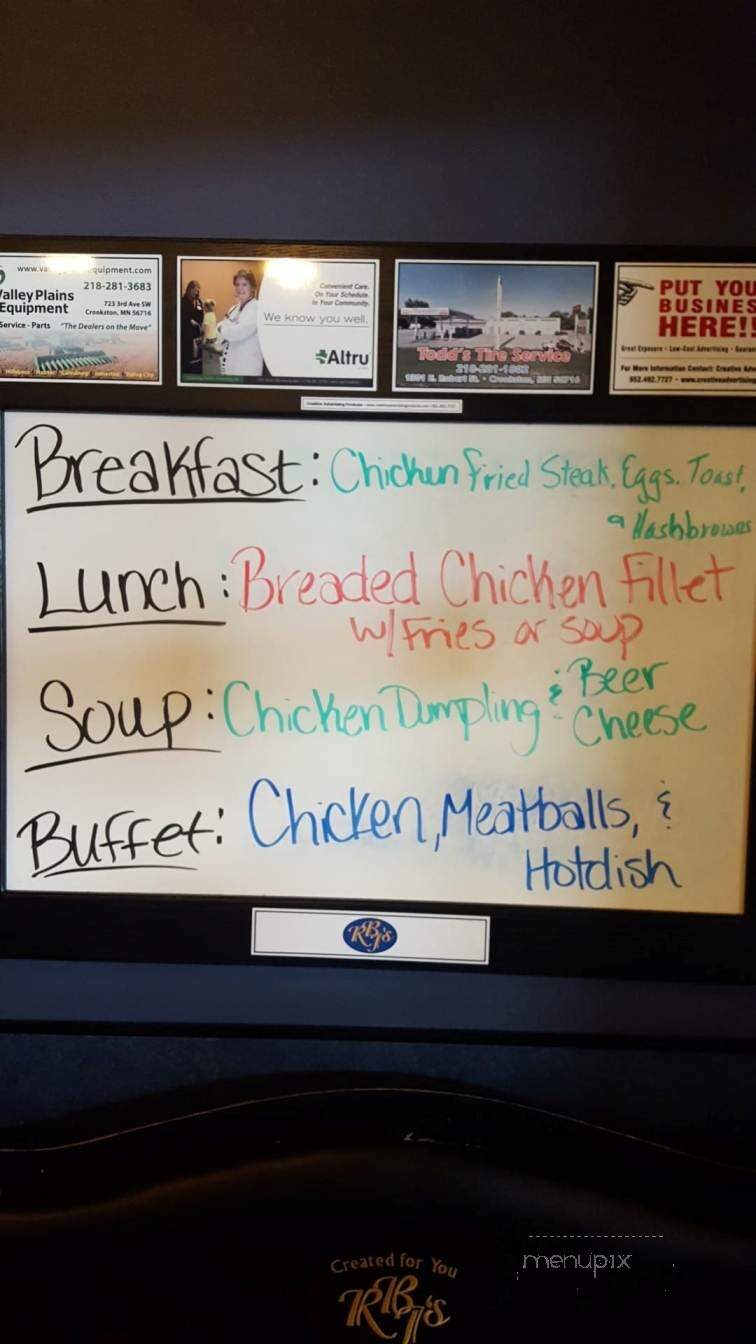 218-281-3683
Valley Plains
Equipment
723 3rd Ave SW
Crookston, MN 56716
Service - Parts "The Dealers on the Move"
Convenient Care.
On Your Schedule.
In Your Community.
We know you well.
Altru
Todd's Tire Service
PUT YOU
BUSINES
HERE!!
Great Exposure • Low-Cost Advertising •
For More Information Contact: Creative Adv
952.492.7727 •
Breakfast: Chicken Fried Steak, Eggs, Toast,
& Hashbrowns
Lunch: Breaded Chicken Fillet
w/Fries or Soup
Soup: Chicken Dumpling & Beer
Cheese
Buffet: Chicken, Meatballs, &
Hotdish
RBJ's
Created for You
RBJ's
menupix